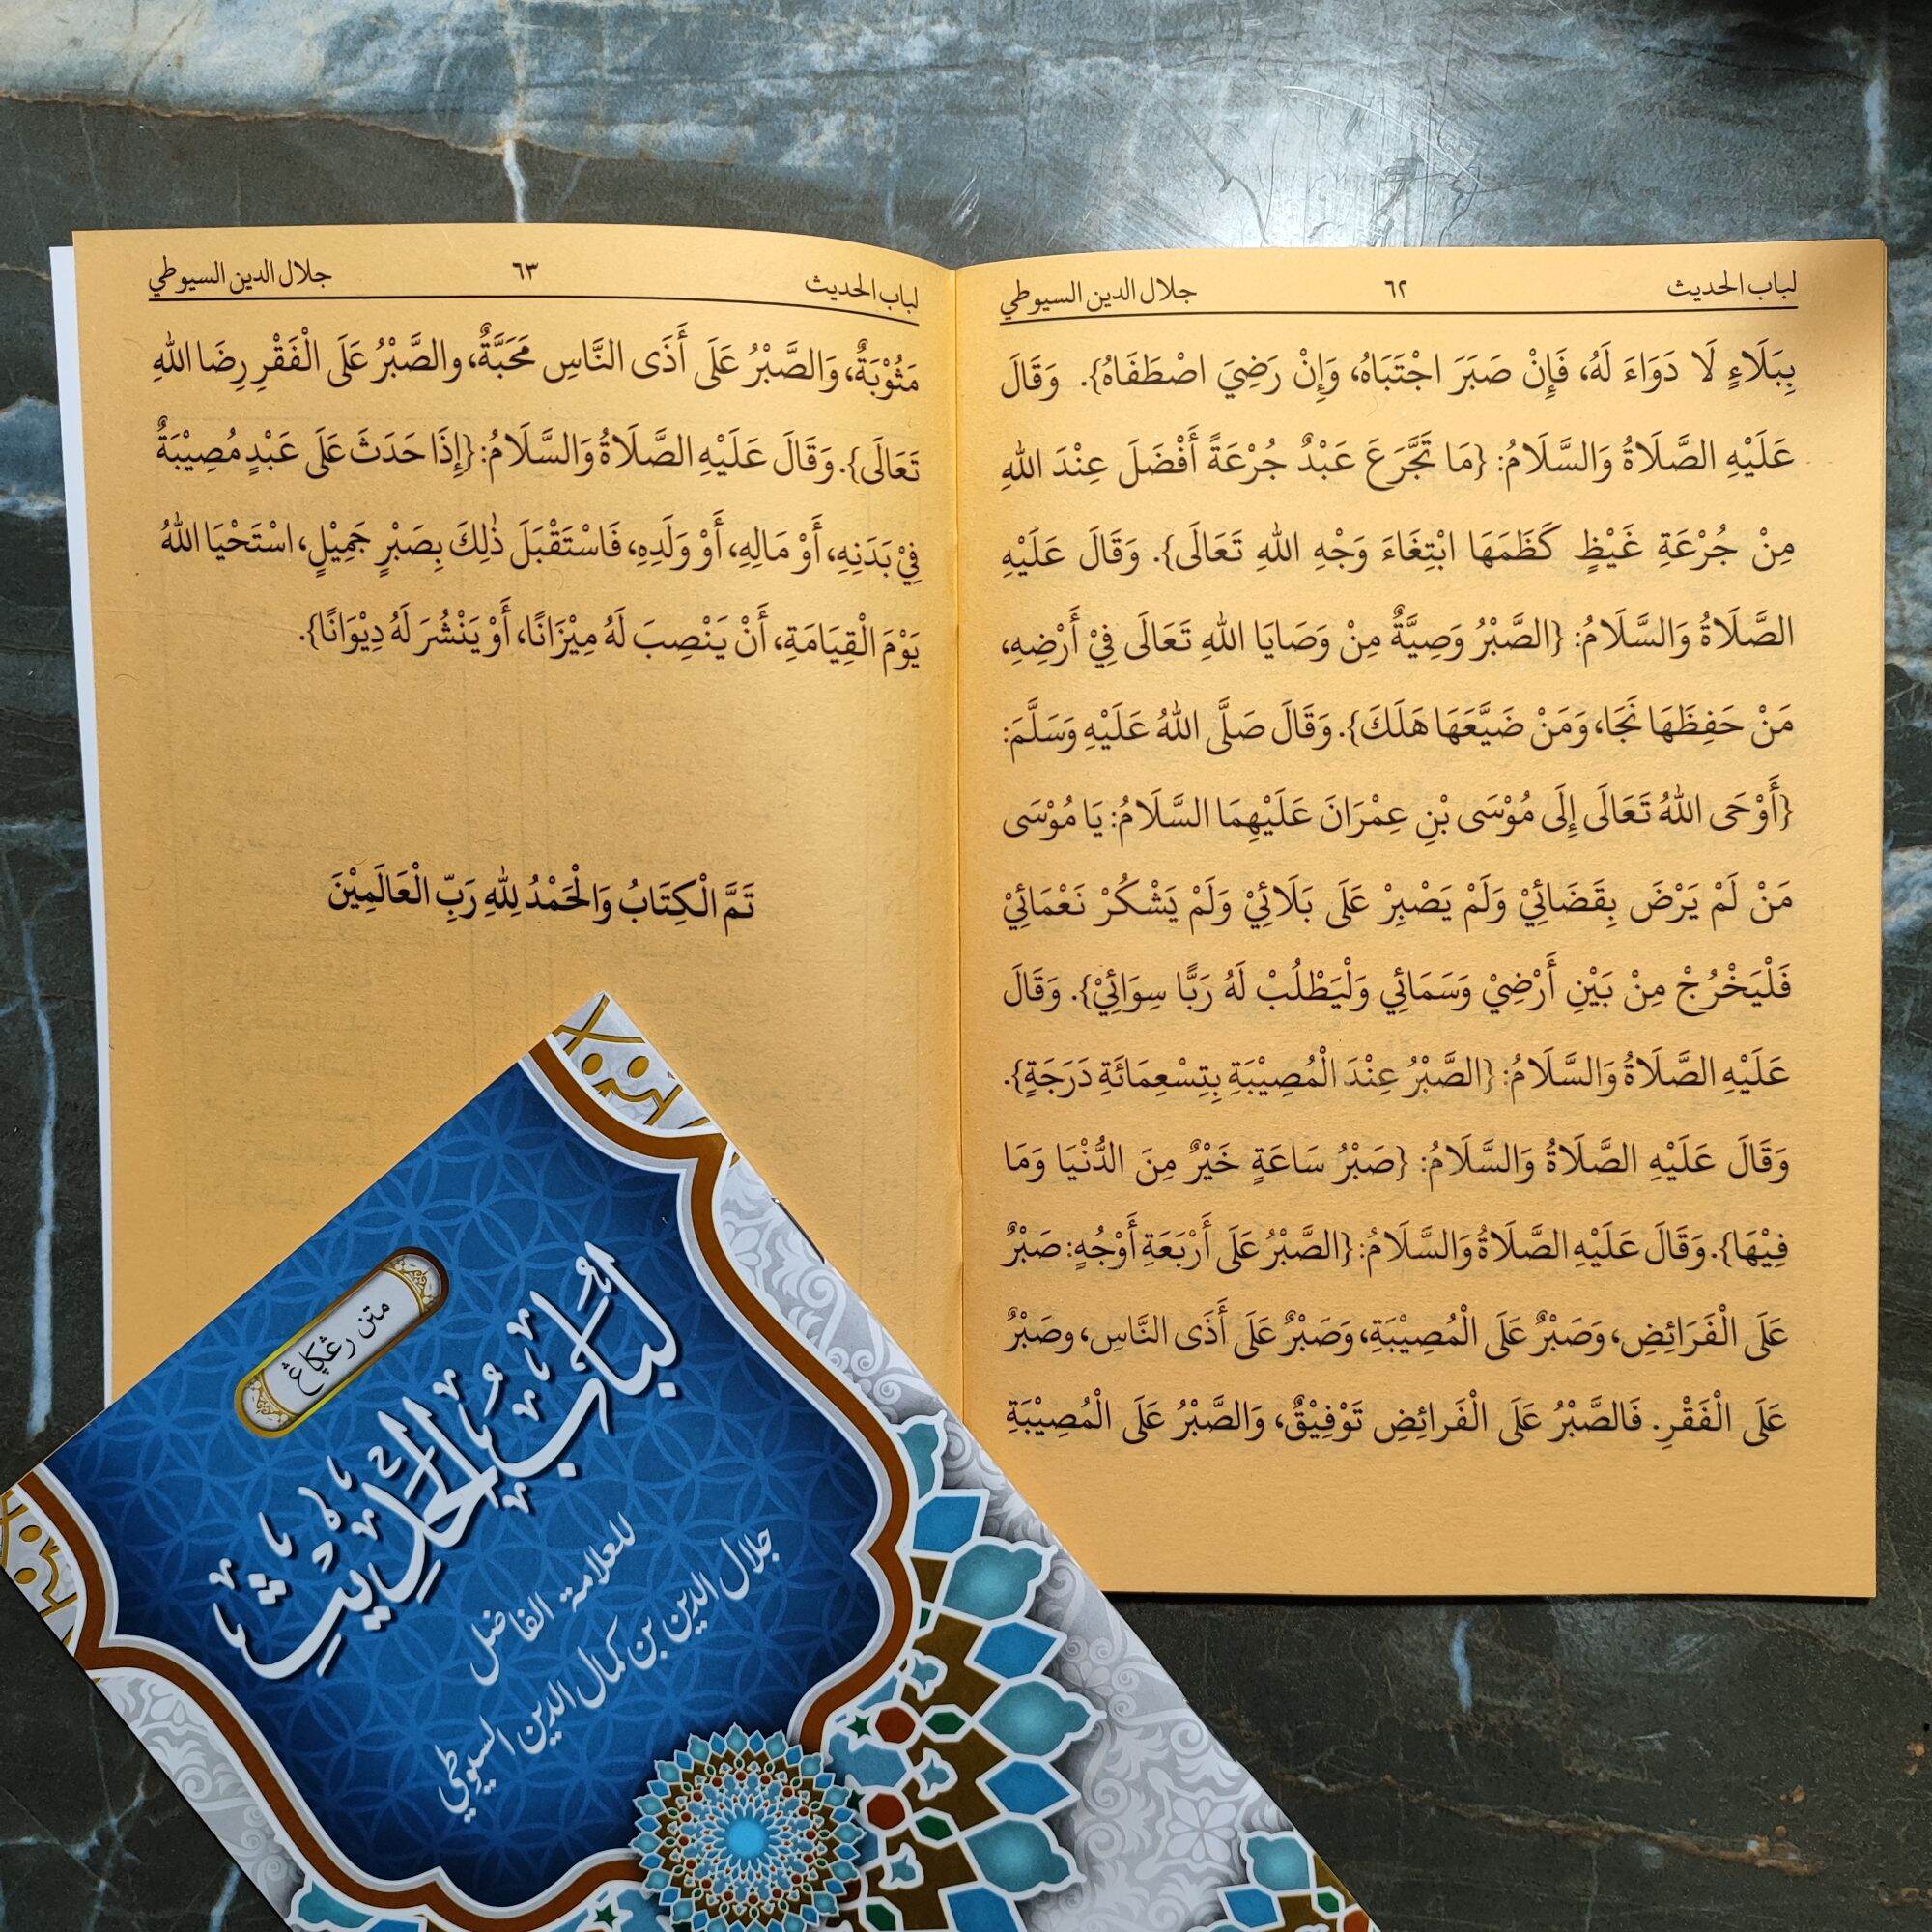 لباب الحديث ٦٢ جلال الدين السيوطي
بِبَلَاءٍ لَا دَوَاءَ لَهُ، فَإِنْ صَبَرَ اجْتَبَاهُ، وَإِنْ رَضِيَ اصْطَفَاهُ}. وَقَالَ
عَلَيْهِ الصَّلَاةُ وَالسَّلَامُ: {مَا تَجَّرَعَ عَبْدٌ جُرْعَةً أَفْضَلَ عِنْدَ اللهِ
مِنْ جُرْعَةِ غَيْظٍ كَظَمَهَا ابْتِغَاءَ وَجْهِ اللهِ تَعَالَى}. وَقَالَ عَلَيْهِ
الصَّلَاةُ وَالسَّلَامُ: {الصَّبْرُ وَصِيَّةٌ مِنْ وَصَايَا اللهِ تَعَالَى فِيْ أَرْضِهِ،
مَنْ حَفِظَهَا نَجَا، وَمَنْ ضَيَّعَهَا هَلَكَ}. وَقَالَ صَلَّى اللهُ عَلَيْهِ وَسَلَّمَ:
{أَوْحَى اللهُ تَعَالَى إِلَى مُوْسَى بْنِ عِمْرَانَ عَلَيْهِمَا السَّلَامُ: يَا مُوْسَى
مَنْ لَمْ يَرْضَ بِقَضَائِيْ وَلَمْ يَصْبِرْ عَلَى بَلَائِيْ وَلَمْ يَشْكُرْ نَعْمَائِيْ
فَلْيَخْرُجْ مِنْ بَيْنِ أَرْضِيْ وَسَمَائِي وَلْيَطْلُبْ لَهُ رَبًّا سِوَائِيْ}. وَقَالَ
عَلَيْهِ الصَّلَاةُ وَالسَّلَامُ: {الصَّبْرُ عِنْدَ الْمُصِيْبَةِ بِتِسْعِمَائَةِ دَرَجَةٍ}.
وَقَالَ عَلَيْهِ الصَّلَاةُ وَالسَّلَامُ: {صَبْرُ سَاعَةٍ خَيْرٌ مِنَ الدُّنْيَا وَمَا
فِيْهَا}. وَقَالَ عَلَيْهِ الصَّلَاةُ وَالسَّلَامُ: {الصَّبْرُ عَلَى أَرْبَعَةِ أَوْجُهٍ: صَبْرٌ
عَلَى الْفَرَائِضِ، وَصَبْرٌ عَلَى الْمُصِيْبَةِ، وَصَبْرٌ عَلَى أَذَى النَّاسِ، وصَبْرٌ
عَلَى الْفَقْرِ. فَالصَّبْرُ عَلَى الْفَرائِضِ تَوْفِيْقٌ، وَالصَّبْرُ عَلَى الْمُصِيْبَةِ
لباب الحديث ٦٣ جلال الدين السيوطي
مَثُوْبَةٌ، وَالصَّبْرُ عَلَى أَذَى النَّاسِ مَحَبَّةٌ، والصَّبْرُ عَلَى الْفَقْرِ رِضَا اللهِ
تَعَالَى}. وَقَالَ عَلَيْهِ الصَّلَاةُ وَالسَّلَامُ: {إِذَا حَدَثَ عَلَى عَبْدٍ مُصِيْبَةٌ
فِيْ بَدَنِهِ، أَوْ مَالِهِ، أَوْ وَلَدِهِ، فَاسْتَقْبَلَ ذٰلِكَ بِصَبْرٍ جَمِيْلٍ، اسْتَحْيَا اللهُ
يَوْمَ الْقِيَامَةِ، أَنْ يَنْصِبَ لَهُ مِيْزَانًا، أَوْ يَنْشُرَ لَهُ دِيْوَانًا}.
تَمَّ الْكِتَابُ وَالْحَمْدُ لِلهِ رَبِّ الْعَالَمِيْنَ
متن رڠكاڠ
لُبَابُ الْحَدِيْثِ
للعلامة الفاضل
جلال الدين بن كمال الدين السيوطي